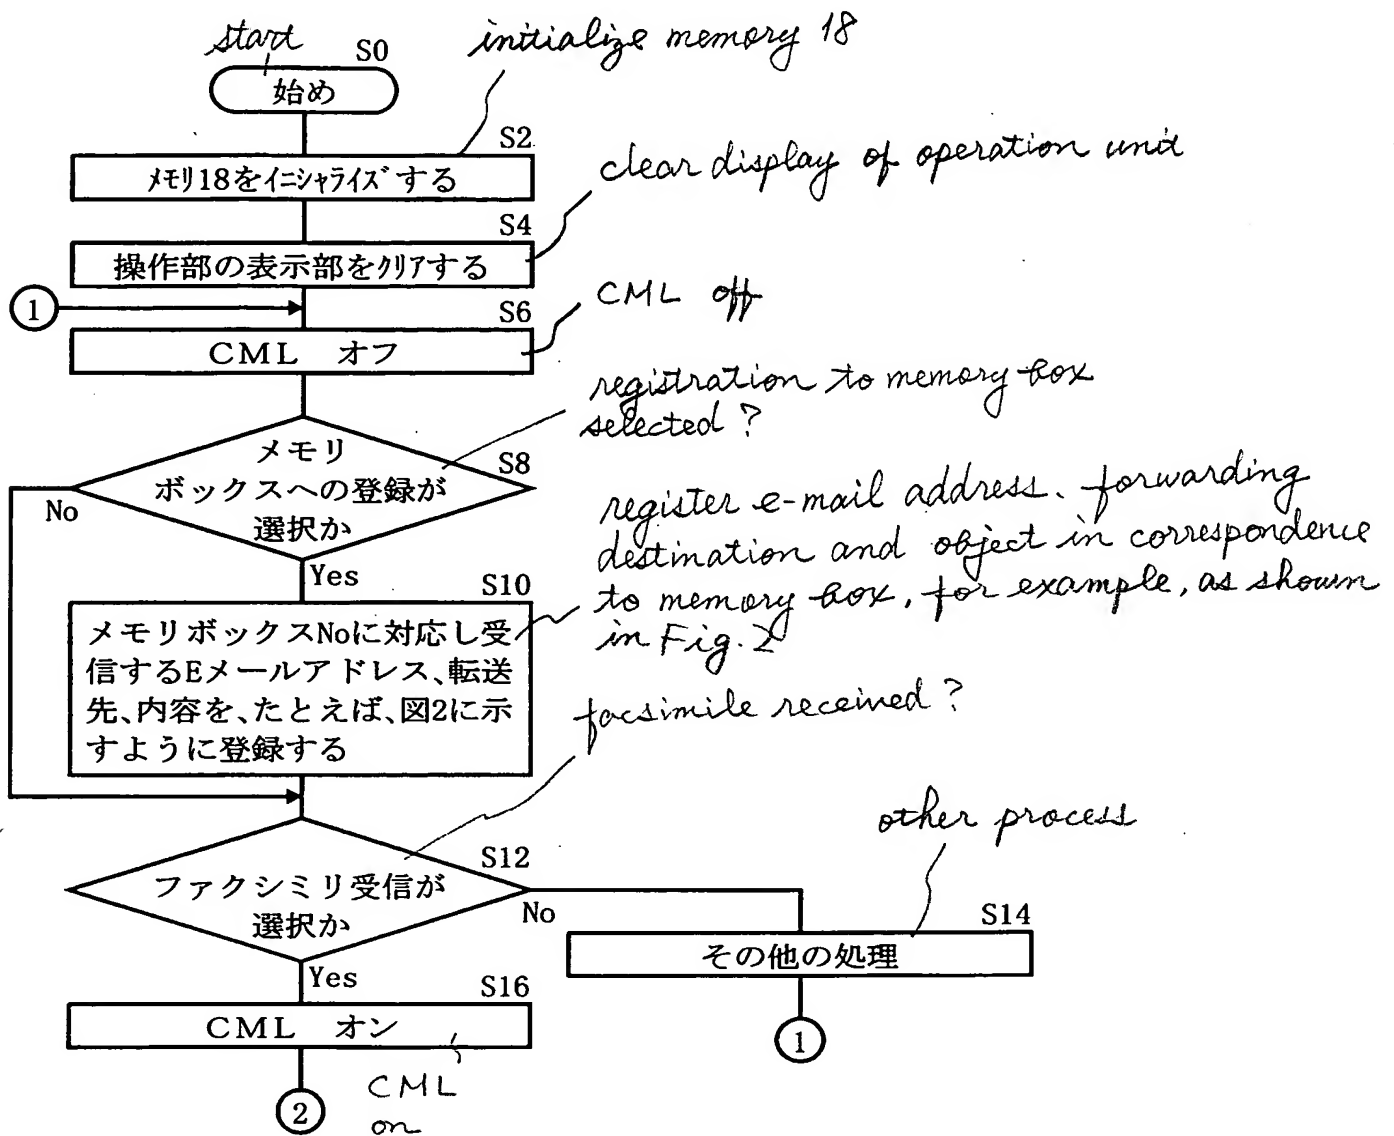 start
S0
initialize memory 18
始め
S2
メモリ18をイニシャライズする
clear display of operation unit
S4
操作部の表示部をクリアする
1
CML off
S6
CML オフ
registration to memory box
selected?
メモリ
ボックスへの登録が
選択か
S8
No
Yes
register e-mail address, forwarding
destination and object in correspondence
to memory box, for example, as shown
in Fig. 2
S10
メモリボックスNoに対応し受
信するEメールアドレス、転送
先、内容を、たとえば、図2に示
すように登録する
facsimile received?
S12
ファクシミリ受信が
選択か
No
Yes
other process
S14
その他の処理
1
S16
CML オン
CML
on
2